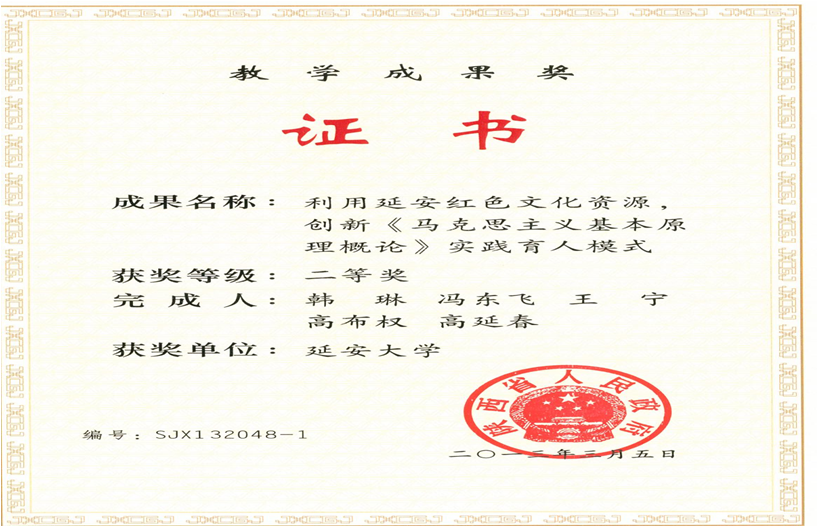 教学成果奖
证书
成果名称：利用延安红色文化资源，
创新《马克思主义基本原
理概论》实践育人模式
获奖等级：二等奖
完成人：韩琳 冯东飞 王宁
高布权 高延春
获奖单位：延安大学
陕西省人民政府
编号：SJX132048-1
二〇一三年三月五日